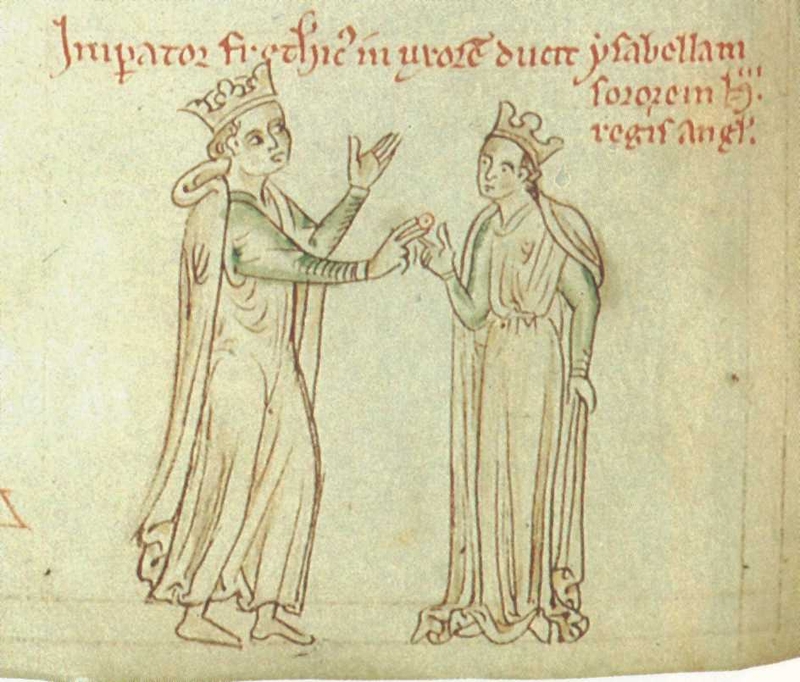 Imperator frethic' in uxorē ducit ysabellam
sororem h. iii.
regis angl'.